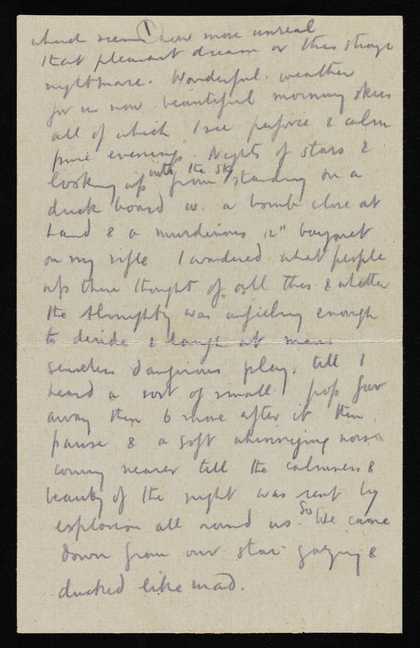 which seems how more unreal
that pleasant dream or this strange
nightmare. Wonderful weather
for us now beautiful morning skies
all of which I see perforce & calm
pure evenings. Nights of stars &
looking up into the sky from standing on a
duck board w. a bomb close at
hand & a murderous 12" bayonet
on my rifle I wondered what people
up there thought of all this & whether
the Almighty was unfeeling enough
to deride & laugh at mans
senseless dangerous play. till I
heard a sort of small pop far
away then 6 more after it then
pause & a soft whinnying noise
coming nearer till the calmness &
beauty of the night was rent by
explosion all round us. So we came
down from our star gazing &
ducked like mad.